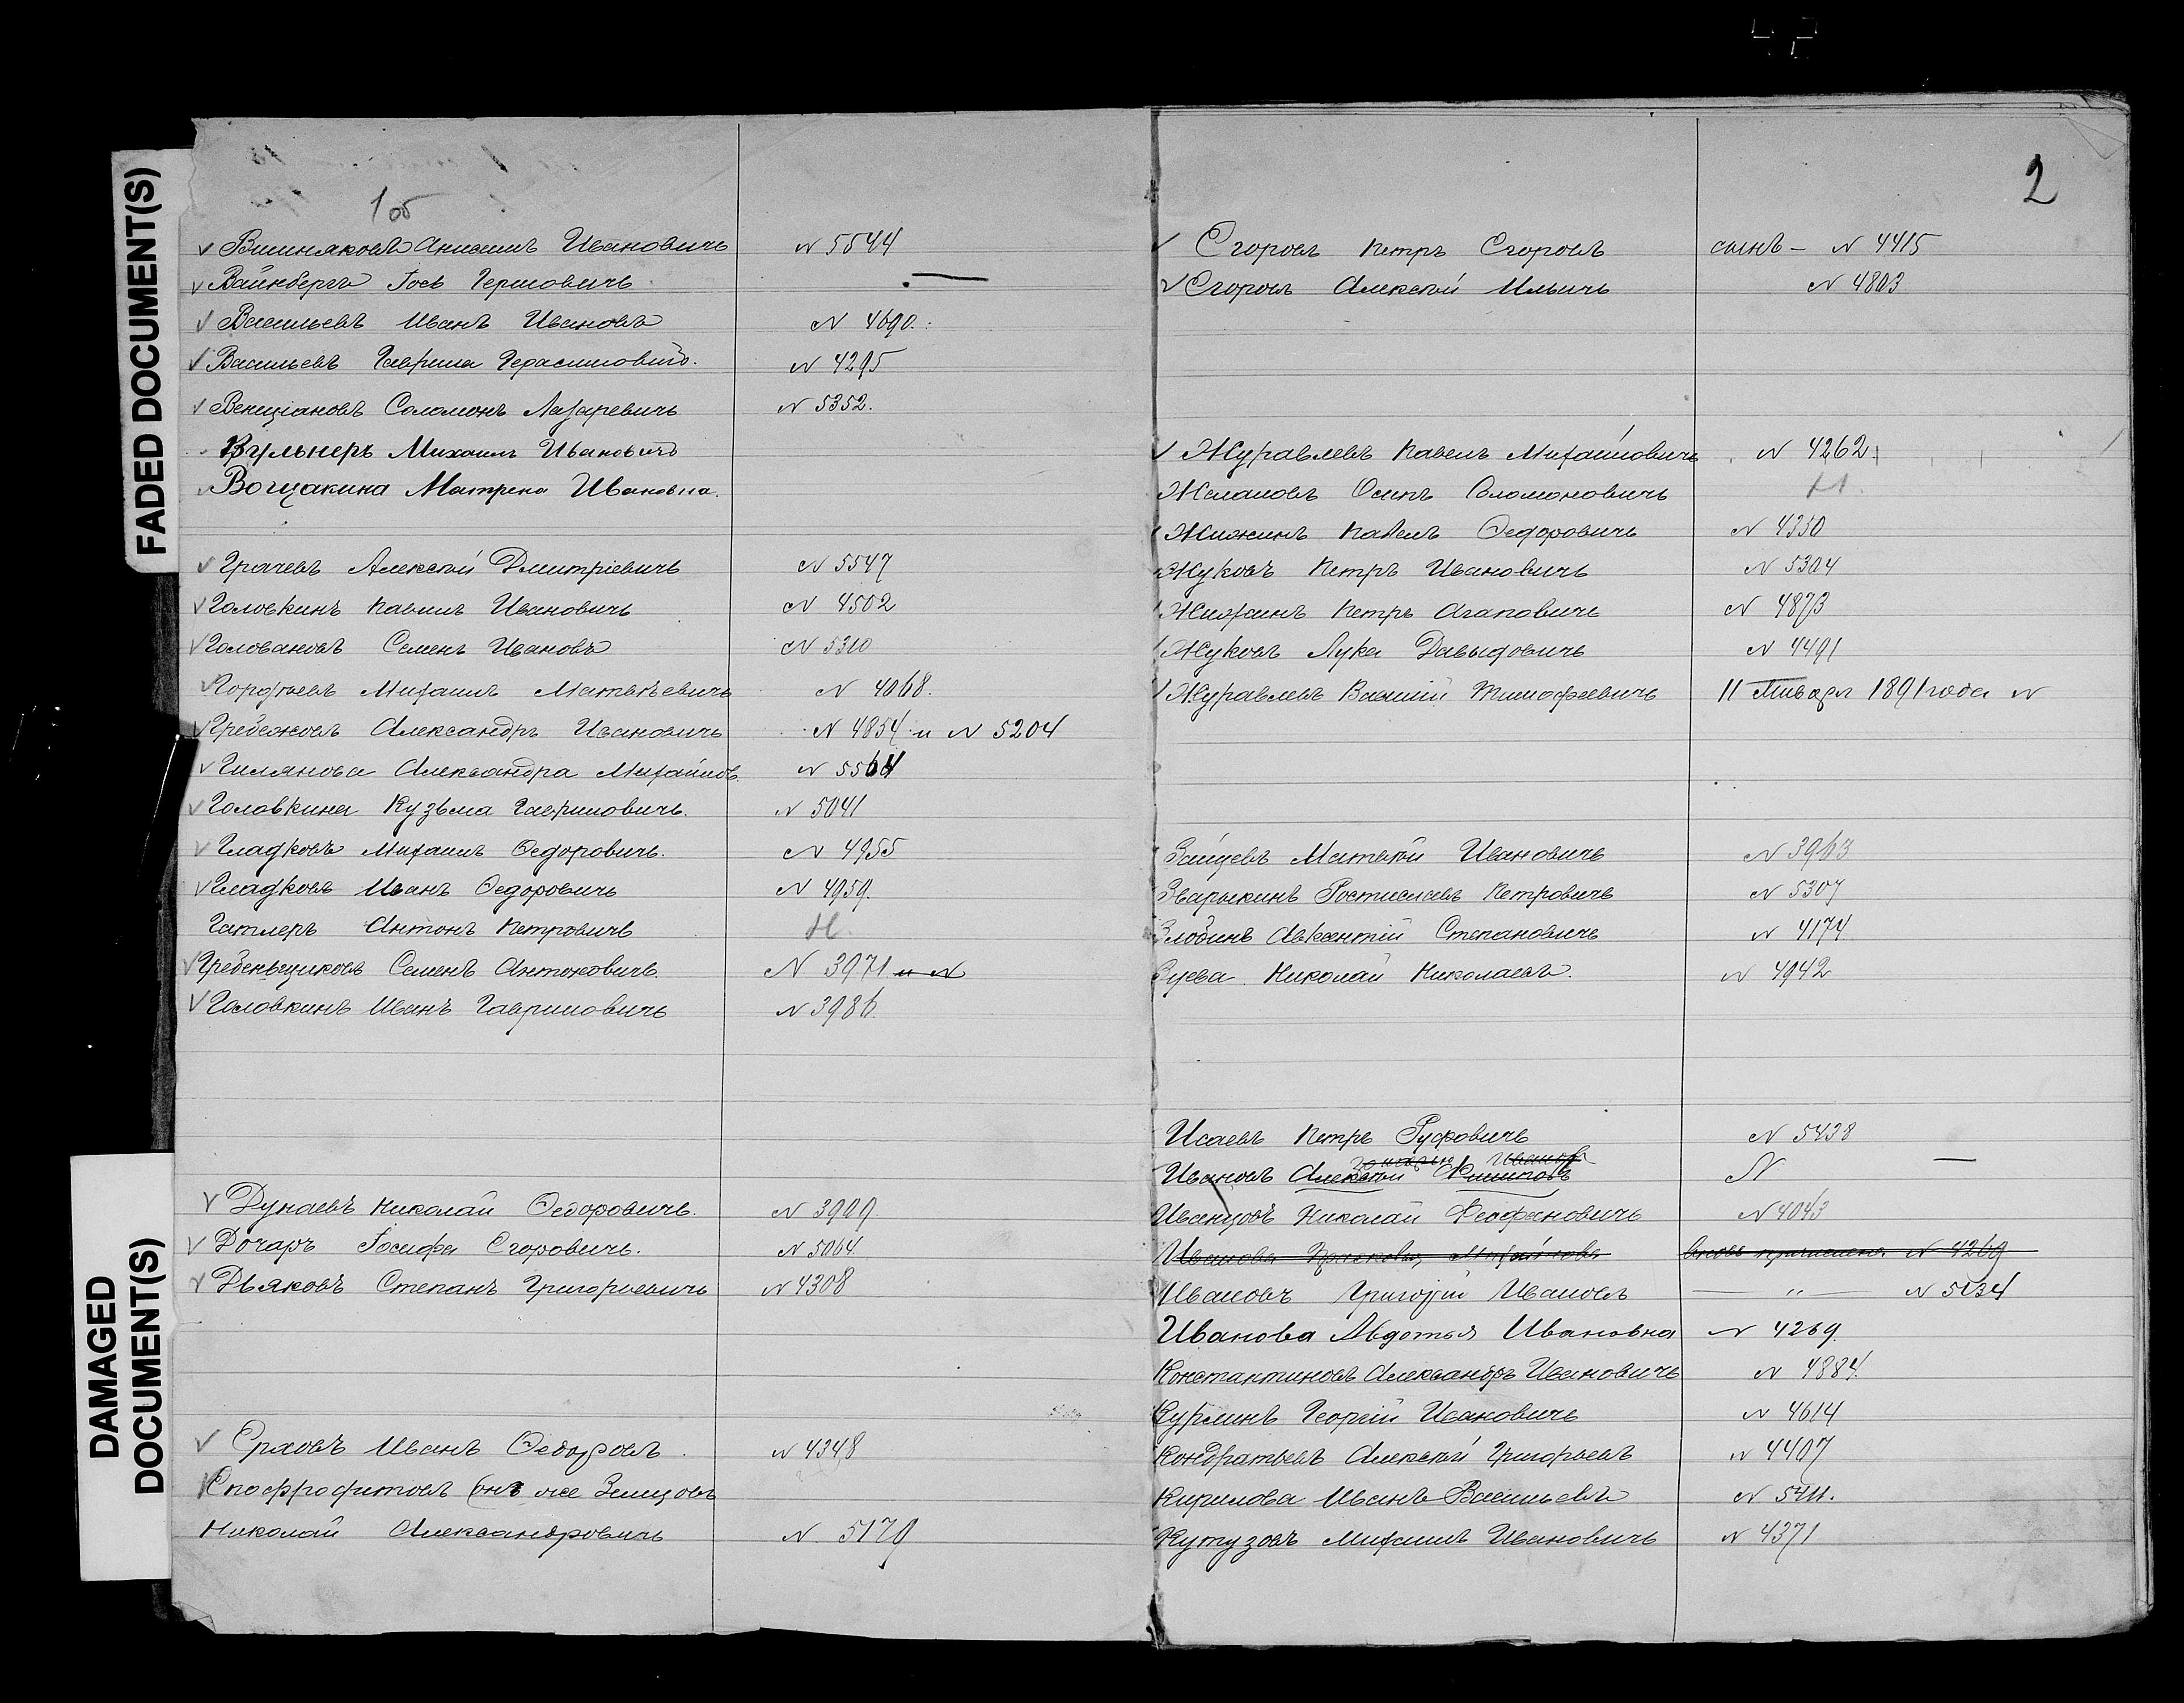 FADED DOCUMENT(S)
DAMAGED
DOCUMENT(S)
1 об
Вишняковъ Анисимъ Ивановичъ N 5544
Вайнбергъ Іось Гершовичъ —
Васильевъ Иванъ Ивановъ N 4690.
Васильевъ Гаврила Герасимовичъ. N 4295
Венціановъ Соломонъ Лазаревичъ N 5352.
Вульнеръ Михаилъ Ивановичъ
Вощакина Матрена Ивановна.
Грачевъ Алексѣй Дмитріевичъ N 5547
Головкинъ Павелъ Ивановичъ N 4502
Головановъ Семенъ Ивановъ N 5310
Гордѣевъ Михаилъ Матвѣевичъ N 4068.
Гребежовъ Александръ Ивановичъ N 4854 и N 5204
Гилянова Александра Михайлов. N 5564
Головкина Кузьма Гавриловичъ. N 5041
Гладковъ Михаилъ Ѳедоровичъ. N 4955
Гладковъ Иванъ Ѳедоровичъ N 4959.
Гатлеръ Антонъ Петровичъ N
Гребеньщиковъ Семенъ Антоновичъ. N 3971 и N
Головкинъ Иванъ Гавриловичъ N 3986.
Дунаевъ Николай Ѳедоровичъ. N 3909
Дочаръ Іосифа Егоровичъ. N 5064
Дьяковъ Степанъ Григорьевичъ N 4308
Ерховъ Иванъ Ѳедоровъ. N 4348
Епоффрофитовъ (онъ же Земцовъ
Николай Александровичъ N 5179
2
Егоровъ Петръ Егоровъ сынъ - N 4415
Егоровъ Алексѣй Ильичъ N 4803
Журавлевъ Павелъ Михайловичъ N 4262
Осипъ Соломоновичъ
Павелъ Ѳедоровичъ N 4350
Жуковъ Петръ Ивановичъ N 5304
Петръ Агаповичъ N 4873
Жуковъ Лука Давыдовичъ N 4491
Журавлевъ Василій Тимофеевичъ 11 Января 1891 года N
Зайцевъ Матвѣй Ивановичъ N 3963
Зварыкинъ Ростиславъ Петровичъ N 5307
Злобинъ Авксентій Степановичъ N 4174
Зуева Николай Николаевъ. N 4942
Исаевъ Петръ Руфовичъ N 5438
Иванова
Ивановъ Алексѣй Филиповъ N —
Иванцовъ Николай Феофановичъ N 4043
Иванова Прасковья Михайлова вновь причислена N 4269
Ивановъ Григорій Ивановъ — " — N 5034
Иванова Авдотья Ивановна N 4269.
Константиновъ Александръ Ивановичъ N 4884.
Курлинъ Георгій Ивановичъ N 4614
Кондратьевъ Алексѣй Григорьевъ N 4407
Кирилова Иванъ Васильевъ N 5411.
Кутузовъ Михаилъ Ивановичъ N 4371